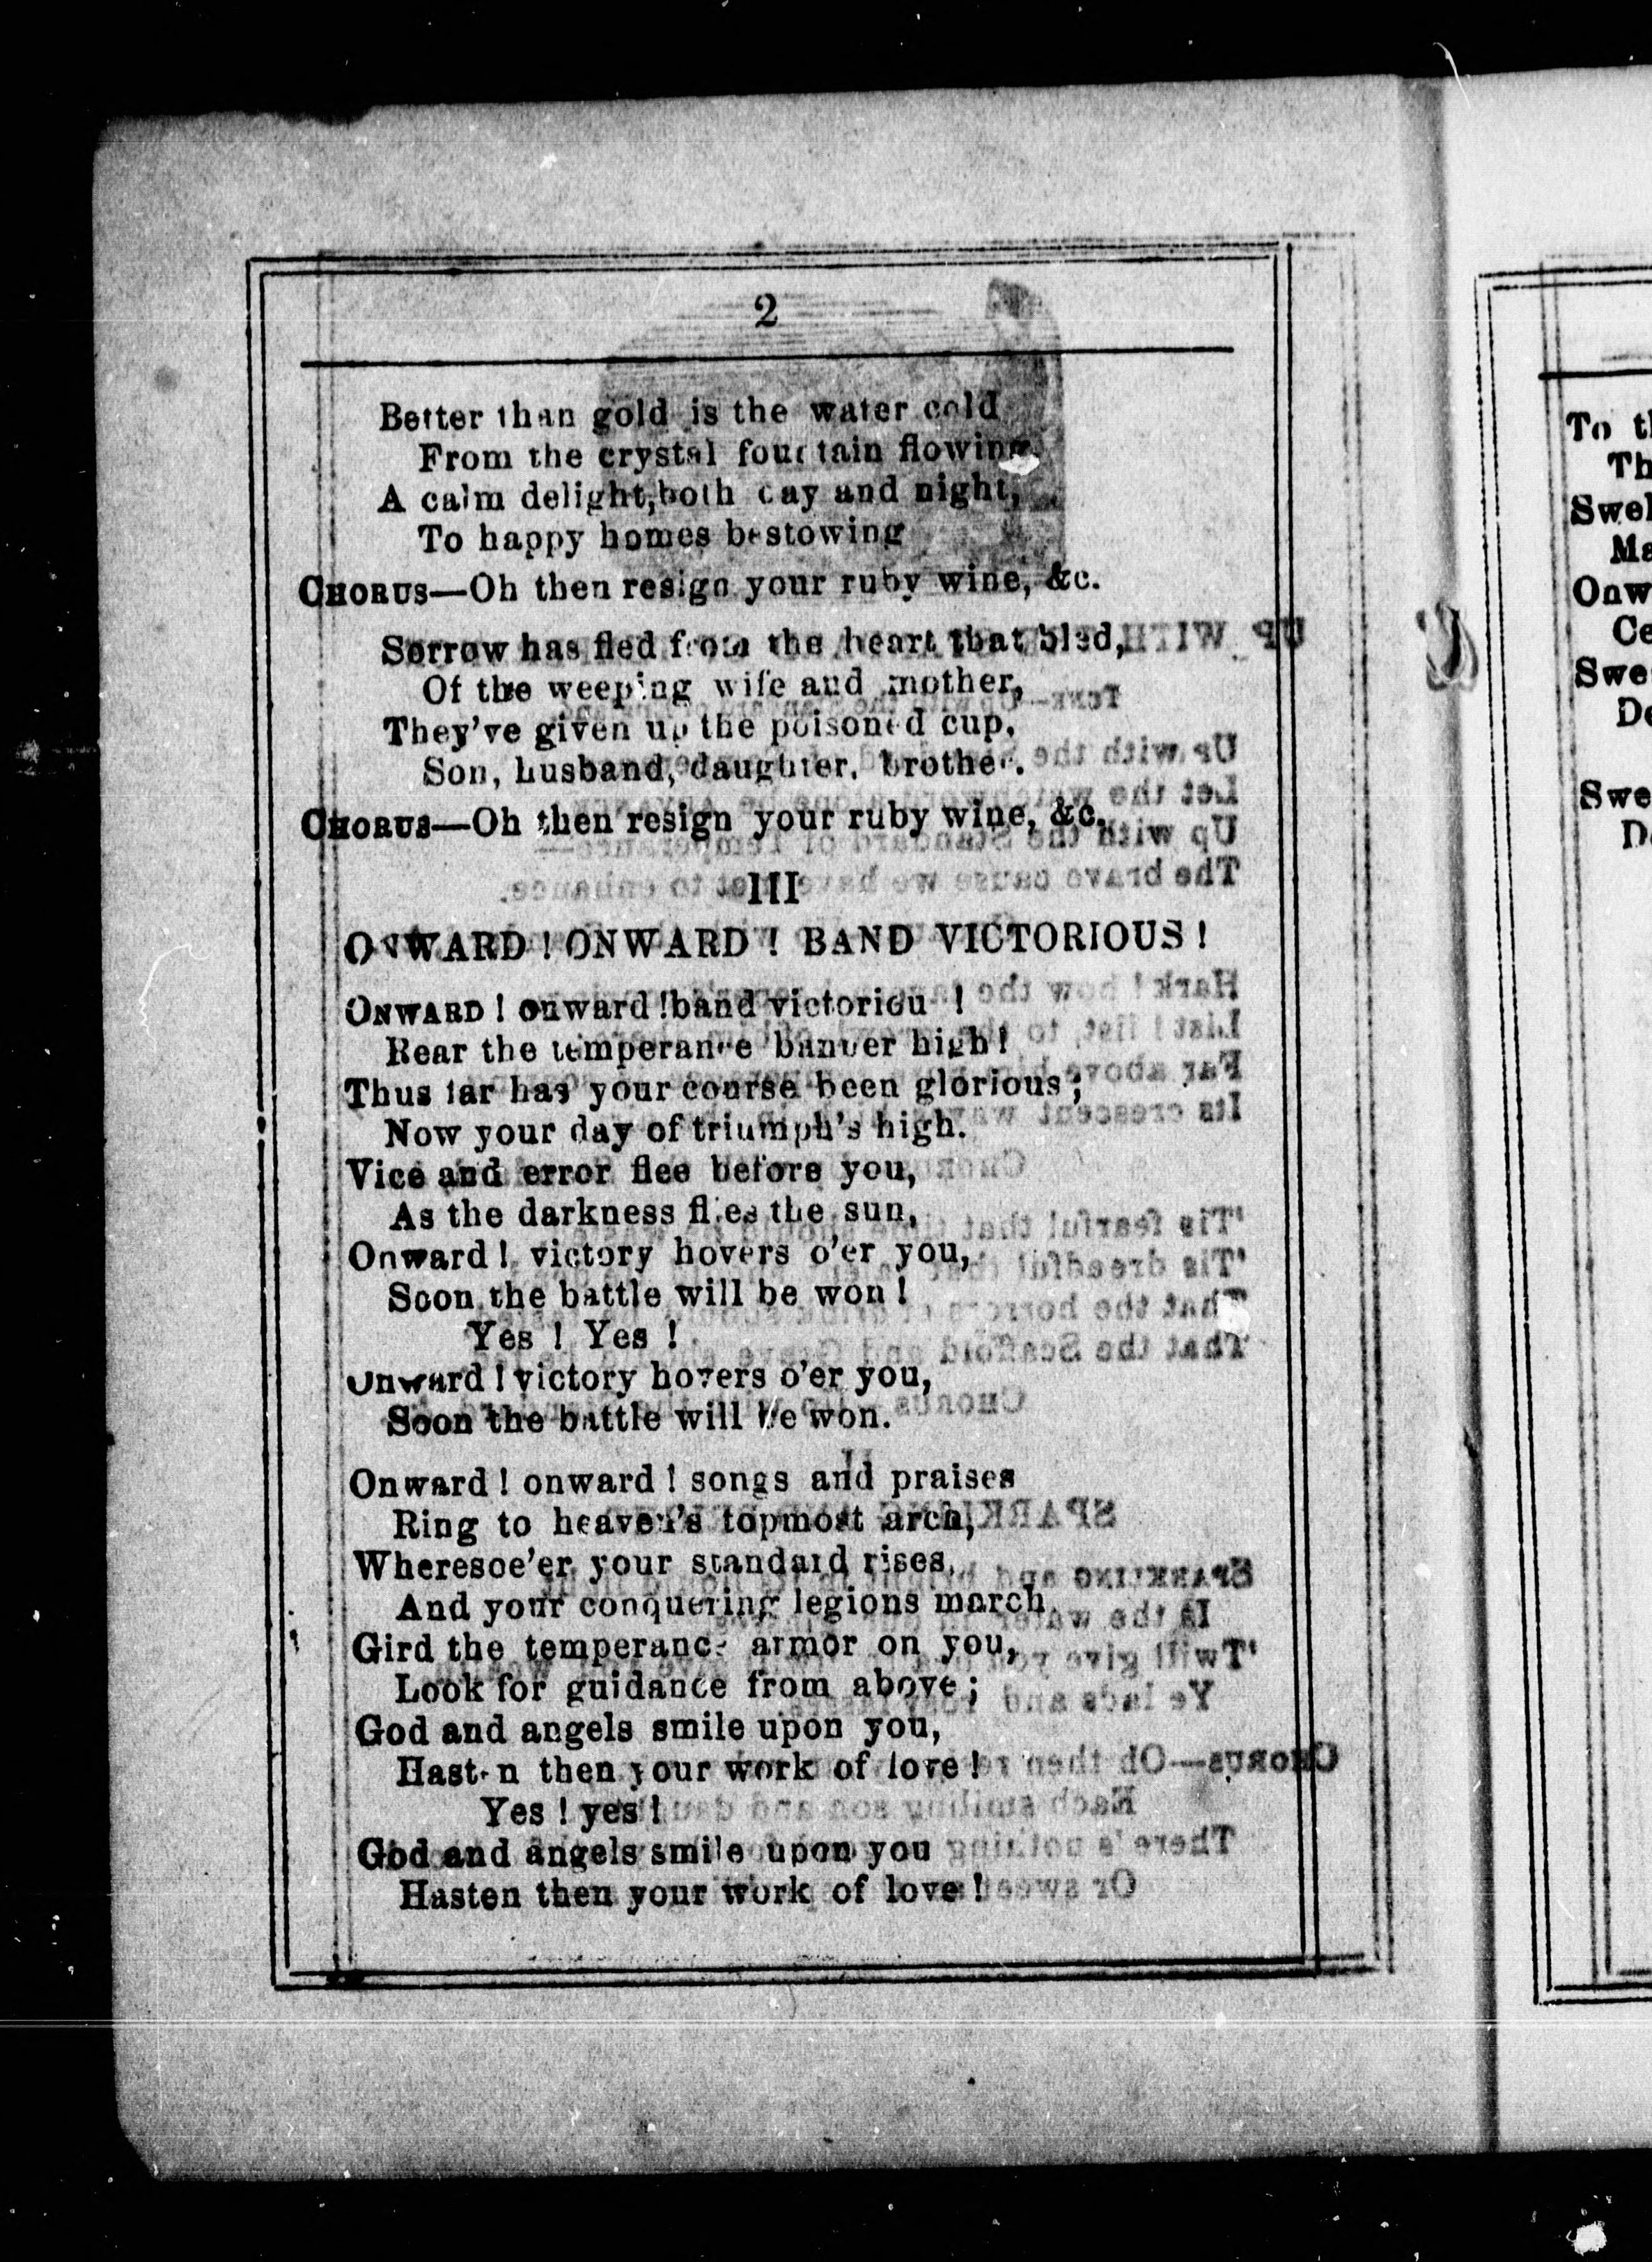 2
Better than gold is the water cold
From the crystal fountain flowing.
A calm delight,both day and night,
To happy homes bestowing
CHORUS—Oh then resign your ruby wine, &c.
Sorrow has fled from the heart that bled,
Of the weeping wife and mother,
They've given up the poisoned cup,
Son, husband, daughter, brother.
CHORUS—Oh then resign your ruby wine, &c.
III
ONWARD ! ONWARD ! BAND VICTORIOUS !
ONWARD ! onward !band victoriou !
Rear the temperance banner high !
Thus far has your course been glorious ;
Now your day of triumph's high.
Vice and error flee before you,
As the darkness flies the sun,
Onward ! victory hovers o'er you,
Soon the battle will be won !
Yes ! Yes !
Onward ! victory hovers o'er you,
Soon the battle will be won.
Onward ! onward ! songs and praises
Ring to heaven's topmost arch,
Wheresoe'er your standard rises,
And your conquering legions march
Gird the temperance armor on you,
Look for guidance from above ;
God and angels smile upon you,
Hasten then your work of love !
Yes ! yes !
God and angels smile upon you
Hasten then your work of love !
To
Onw